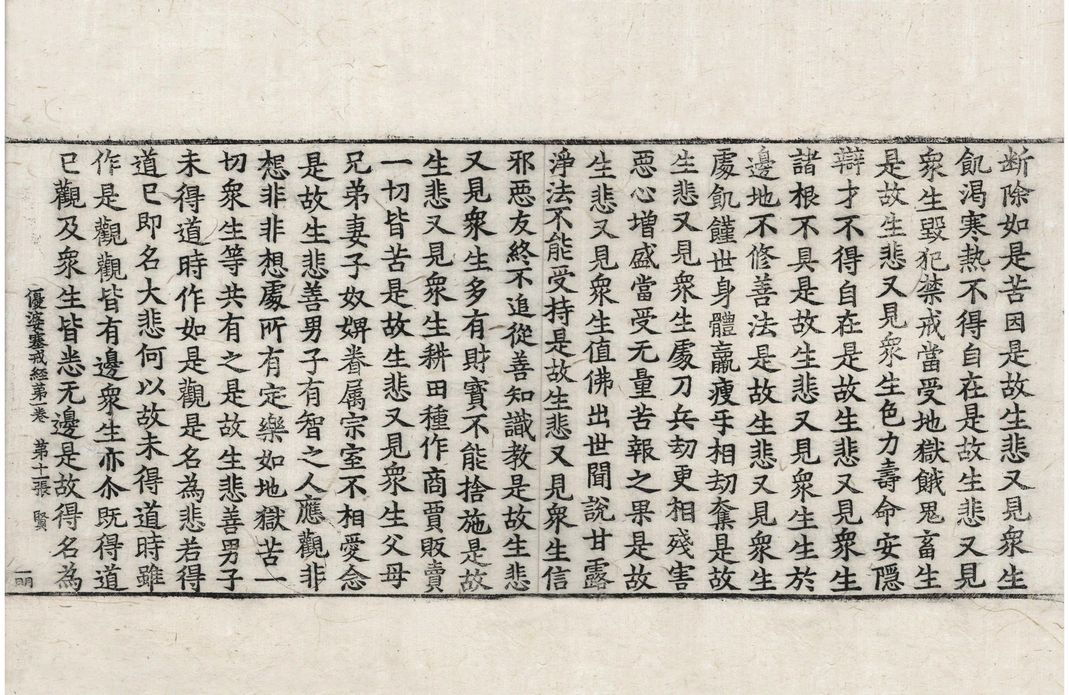 断除如是苦因是故生悲又見衆生
飢渴寒熱不得自在是故生悲又見
衆生毀犯禁戒當受地獄餓鬼畜生
是故生悲又見衆生色力壽命安隱
辯才不得自在是故生悲又見衆生
諸根不具是故生悲又見衆生生於
邊地不修善法是故生悲又見衆生
處飢饉世身體羸瘦手相劫奪是故
生悲又見衆生處刀兵劫更相殘害
惡心增盛當受无量苦報之果是故
生悲又見衆生值佛出世聞說甘露
淨法不能受持是故生悲又見衆生信
邪惡友終不追從善知識教是故生悲
又見衆生多有財寶不能捨施是故
生悲又見衆生耕田種作商賈販賣
一切皆苦是故生悲又見衆生父母
兄弟妻子奴婢眷属宗室不相愛念
是故生悲善男子有智之人應觀非
想非非想處所有定樂如地獄苦一
切衆生等共有之是故生悲善男子
未得道時作如是觀是名為悲若得
道已即名大悲何以故未得道時雖
作是觀觀皆有邊衆生亦尒既得道
已觀及衆生皆悉无邊是故得名為
優婆塞戒経第一卷 第十一張 賢